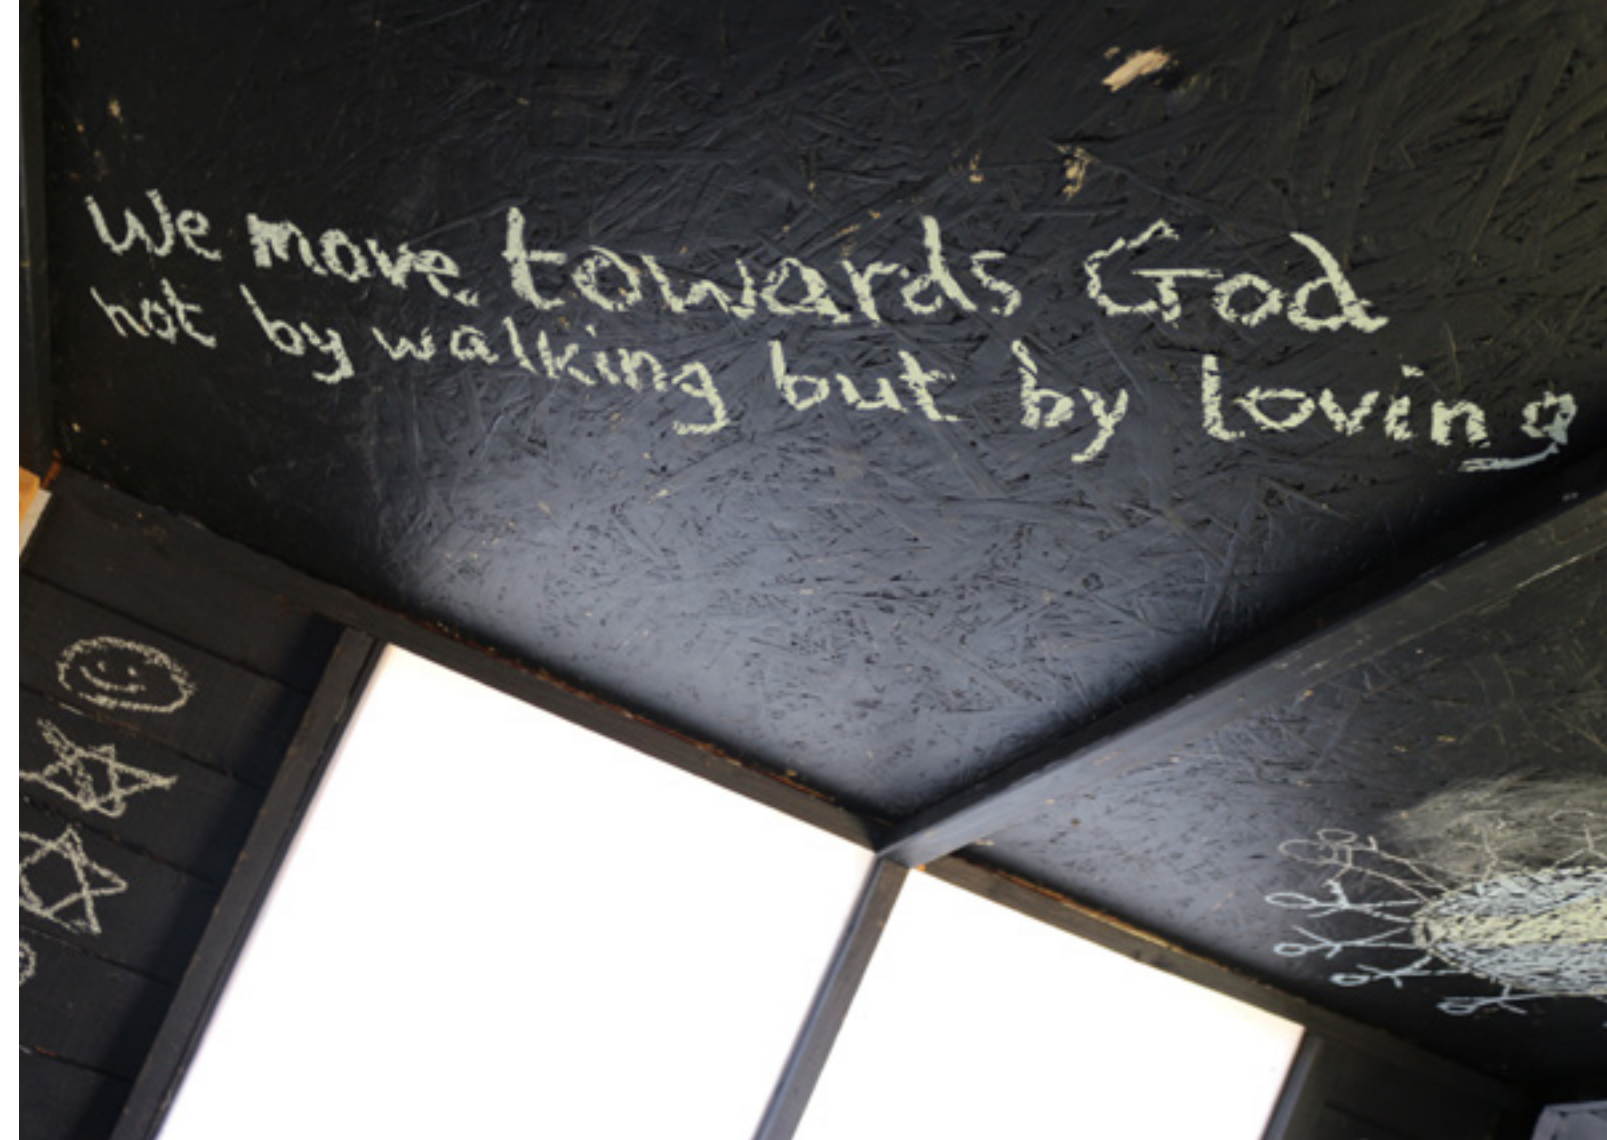 We move towards God
not by walking but by loving